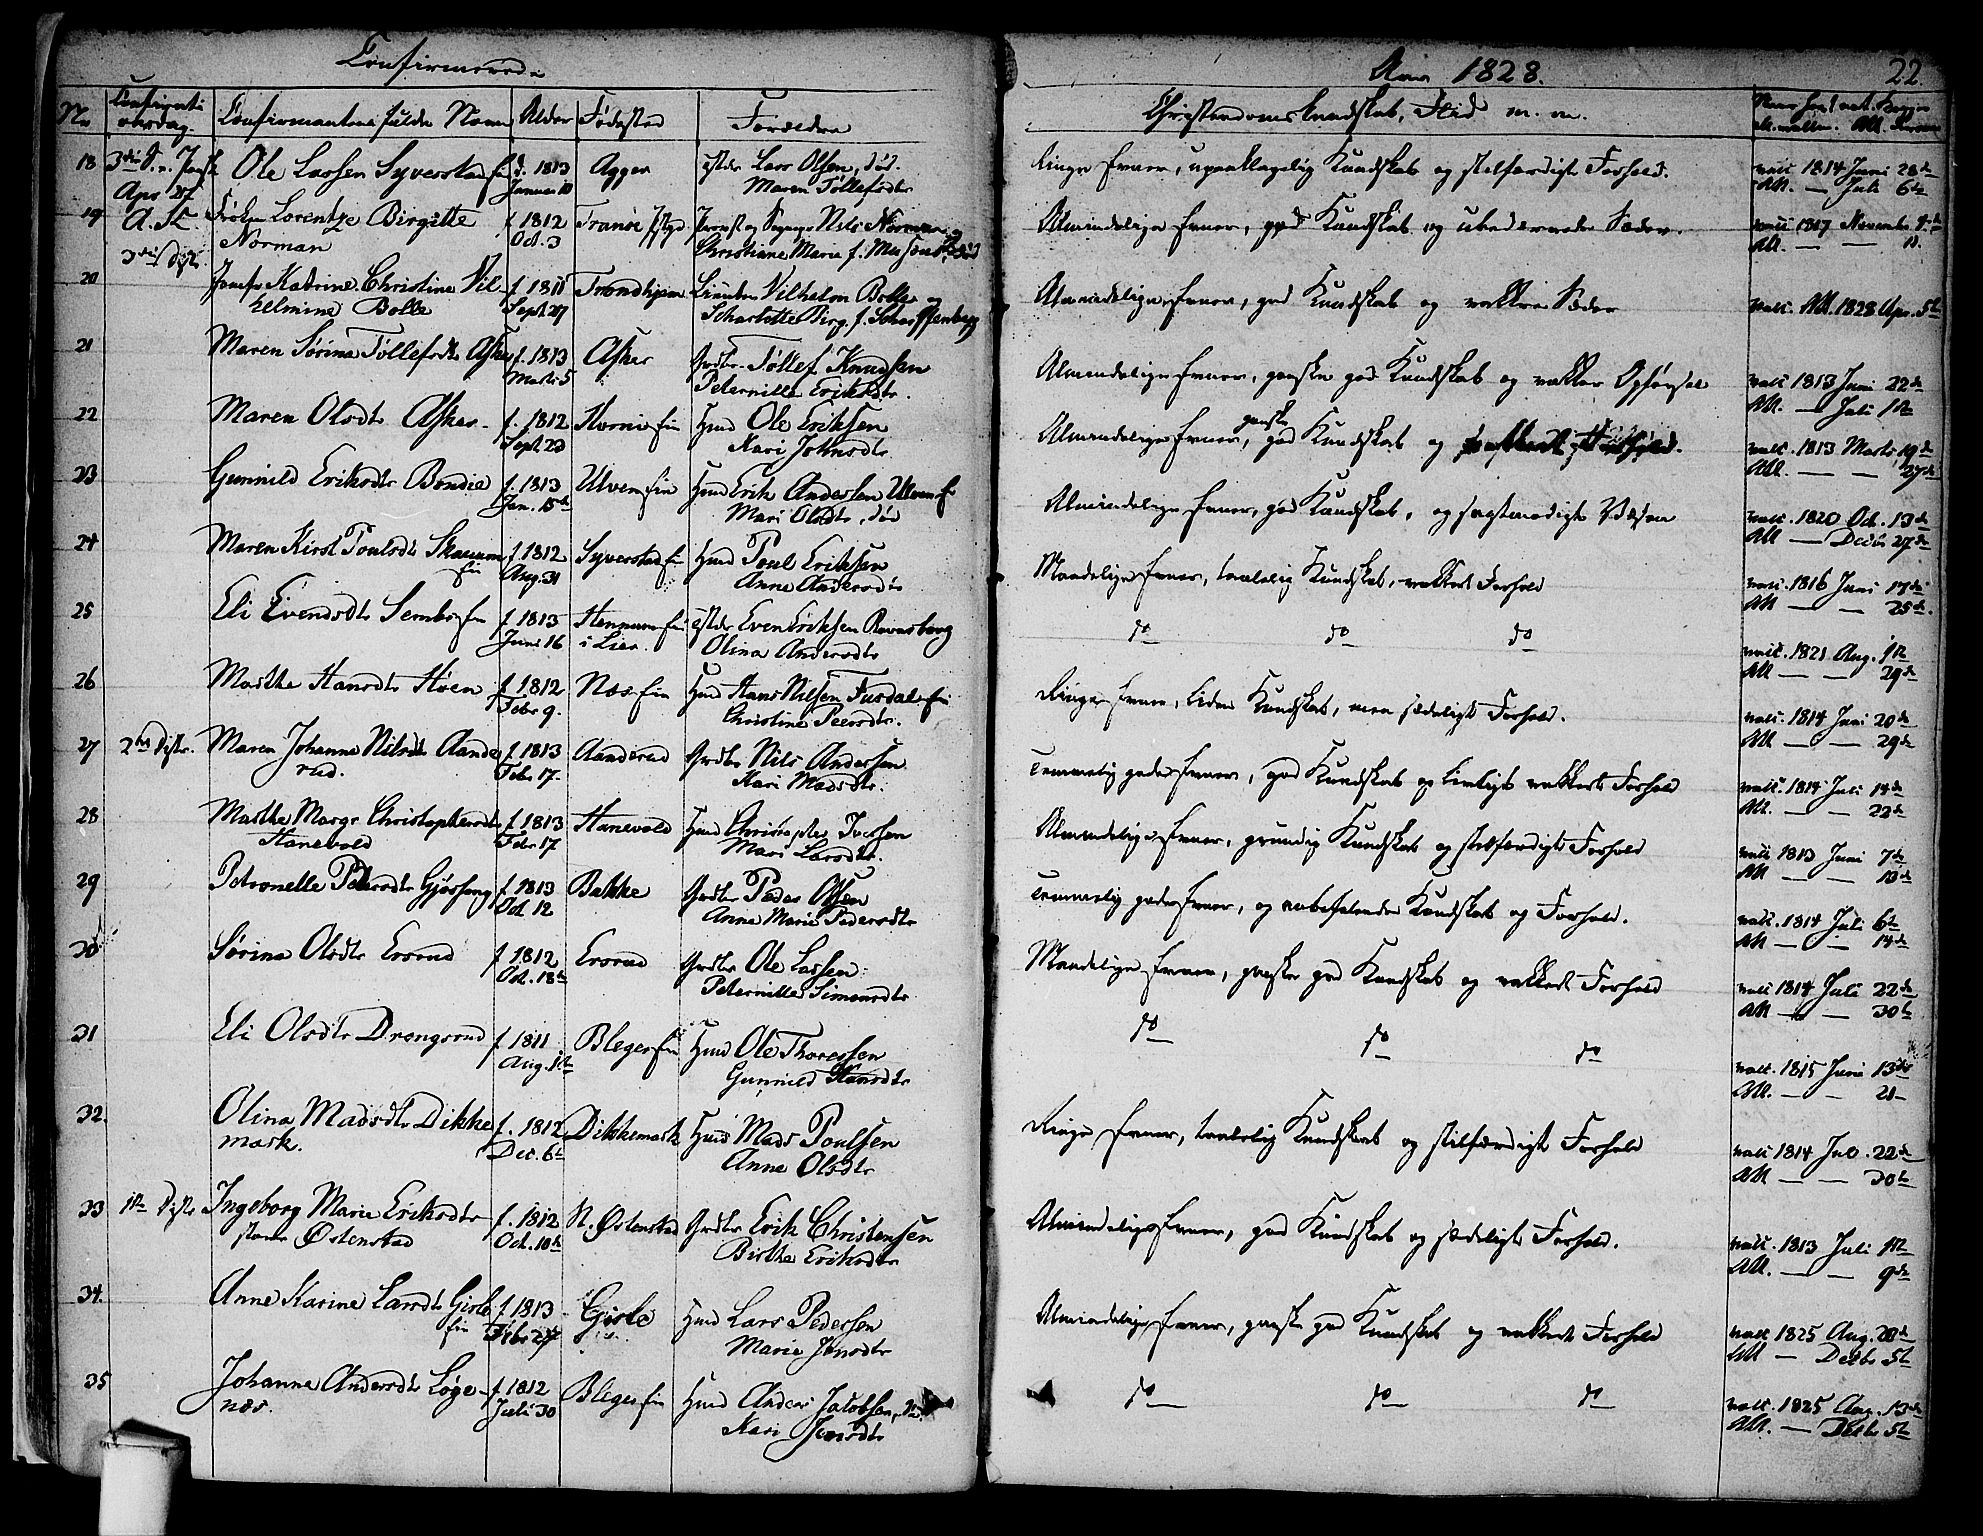 Confirmerede
Anno 1828.
22.
No
Confirmationsdag.
Confirmantens fulde Navn
Alder
Fødested
Forældre
Christendoms Kundskab, Flid m. m.
18
Apr 27
Ole Larsen Syverstad
f. 1813
Januar 10
Agger
Lars Olsen, død.
Maren Tøllefsdtr
Ringe Evner, upaaklagelig Kundskab og stilfærdigt Forhold.
vacc. 1814 Juni 28de
Att. — Juli 6te
19
Frøken Lorentze Birgitte
Norman
f. 1812
Oct. 3
Tranøe
Provst og Sognepr Nils Norman
Christiane Marie f. Musæus
Almindelige Evner, god Kundskab og udædlede Sæder.
vacc. 1817 November
Att. — — 11.
3die Distr.
20
Jomfr Katrine Christine Vil-
helmine Bolle
f. 1811
Sept. 27
Trondhjem
Vilhelm Bolle og
Scharlotte Birg. f. Scharffenberg
Almindelige Evner, god Kundskab og vakkre Sæder
vacc. Att. 1828 Apr. 5te
21
Maren Sørine Tøllefsdtr Asker
f. 1813
Marts 5
Asker
Grdbr. Tøllef Knudsen
Peternille Eriksdtr.
Almindelige Evner, ganske god Kundskab og vakker Opførsel
vacc. 1813 Juni 22de
Att. — Juli 1ste
22
Maren Olsdtr Asker
f. 1812
Sept. 20
Huusmd Ole Eriksen
Kari Johnsdtr
Almindelige Evner, ganske god Kundskab og
vacc. 1813 Marts 19de
Att. — — 27de
23
Gunnild Eriksdtr Bondie
f. 1813
Jan. 15de
Ulven Eie
Huusmd Erik Andersen Ulven E
Mari Olsdtr, død
Almindelige Evner, god Kundskab, og sagtmodigt Væsen
vacc. 1820 Oct. 13de
Att. — Decbr 27de
24
Maren Kirst. Poulsdtr Skaugum
Eie
f. 1812
Aug. 31
Syverstad Eie
Huusmd Poul Eriksen
Anne Andersdtr
Maadelige Evner, taalelig Kundskab, vakkert Forhold
vacc. 1816 Juni 17de
Att. — — 25de.
25
Eli Evensdtr Sembs Eie
f. 1813
Juni 16
Hennum Eie
i Lier.
Even Eriksen Ravnsborg
Olina Andersdtr
do do do
vacc. 1821 Aug. 1ste
Att. — — 29de
26
Marthe Hansdtr Høen
f. 1812
Febr 9.
Næs Eie
Huusmd Hans Nilsen Fusdal Eie
Christine Peersdtr.
Ringe Evner, liden Kundskab, men sædeligt Forhold.
vacc. 1814 Juni 20de
Att — — 29de
27
2det Distr.
Maren Johanne Nilsdtr Aande
rud.
f. 1813
Febr 17.
Aanderud
Grdbr Nils Andersen
Kari Madsdtr.
Temmelig gode Evner, god Kundskab og vakkert Forhold
vacc. 1814 Juli 14de
Att. — — 22de
28
Marthe Margr. Christophersdtr
Hanevold
f. 1813
Febr 17
Hanevold
Huusmd Christopher Iversen
Mari Larsdtr.
Almindelige Evner, grundig Kundskab og stilfærdigt Forhold
vacc. 1813 Juni 7de
Att — — 13de
29
Petronelle Pedersdtr Gjøssung
f. 1813
Oct. 12
Bakke
Grdbr Peder Olsen
Anne Marie Pedersdtr
Temmelig gode Evner, og anbefalende Kundskab og Forhold.
vacc. 1814 Juli 6te
Att — — 14de
30
Sørine Olsdtr Ersrud
f. 1812
Oct. 18de
Ersrud
Grdbr Ole Larsen
Peternille Simensdtr
Maadelige Evner, ganske god Kundskab og vakkert Forhold
vacc. 1814 Juli 22de
Att — — 30te
31
Eli Olsdtr Drengsrud
f. 1811
Aug. 1ste
Bleger Eie
Huusmd Ole Thoresen
Gunnild Hansdtr
do do do
vacc. 1815 Juni 13de
Att. — — 21
32.
Olina Madsdtr Dikke
mark.
f. 1812
Dec. 6te
Dikkemark
Huusmd Mads Poulsen
Anne Olsdtr
Ringe Evner, taalelig Kundskab og stilfærdigt Forhold
vacc. 1814 Jul. 22de
Att — — 30te
33
1ste Distr
Ingeborg Marie Eriksdtr
store Østenstad
f. 1812
Oct. 10de
N. Østenstad
Grdbr Erik Christensen
Birthe Eriksdtr
Almindelige Evner, god Kundskab og sædeligt Forhold.
vacc. 1813 Juli 1ste
Att. — — 9de
34.
Anne Karine Larsdtr Gisle
Eie
f. 1813
Febr 27
Gisle
Huusmd Lars Pedersen
Marie Jensdtr
Almindelige Evner, ganske god Kundskab og vakkert Forhold
vacc. 1825 Aug. 20de
Att — Decbr 5te
35
Johanne Andersdtr Løge-
næs.
f. 1812
Juli 30
Bleger Eie
Huusmd Anders Jacobsen,
Kari Jensdtr
do do do
vacc. 1825 Aug. 13de
Att. — Decbr 5te